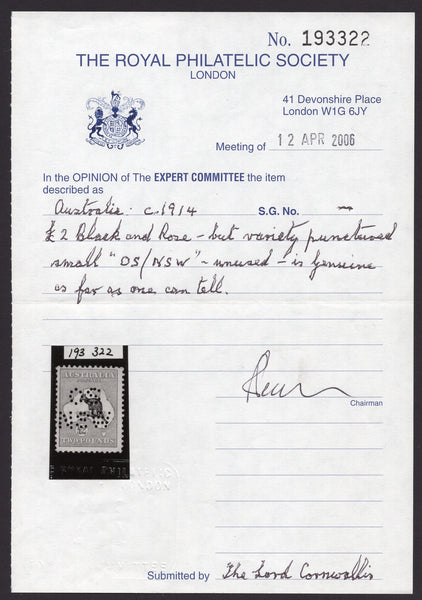 No. 193322
THE ROYAL PHILATELIC SOCIETY
LONDON
41 Devonshire Place
London W1G 6JY
Meeting of 12 APR 2006
In the OPINION of The EXPERT COMMITTEE the item
described as
Australia: c.1914 S.G. No. —
£2 Black and Rose - but variety punctured
small "OS/NSW" - unused - is genuine
as far as one can tell.
193 322
AUSTRALIA
POSTAGE
OS
NSW
£2
TWO POUNDS
Chairman
Submitted by The Lord Cornwallis